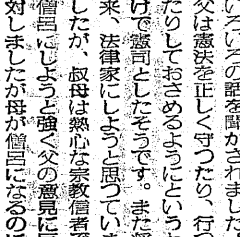 いろいろの話を聞かされました
父は憲法を正しく守つたり、行つ
たりしておさめるようにという
けで憲司としたそうです。また
来、法律家にしようと思つてい
したが、叔母は熱心な宗教信者で
僧呂にしようと強く父の意見に反
対しましたが母が僧呂になるのに